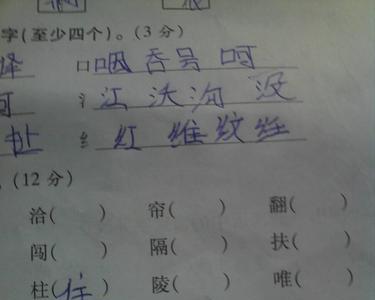 字(至少四个)。(3 分)
口咽吞号呵
氵江沃沟没
扯 纟红维纹经
(12 分)
洽( ) 帘( ) 翻( )
闯( ) 隔( ) 扶( )
柱(住) 陵( ) 唯( )